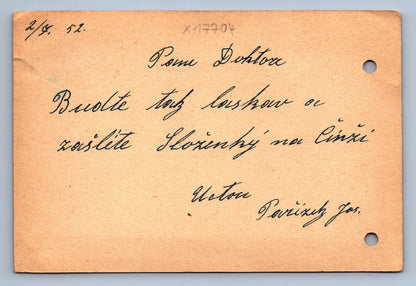 2/7. 52.
x17704
Pane Doktor
Buďte tak laskav a
zašlete Složenky na Činži
Uctou
Pařízek Jos.